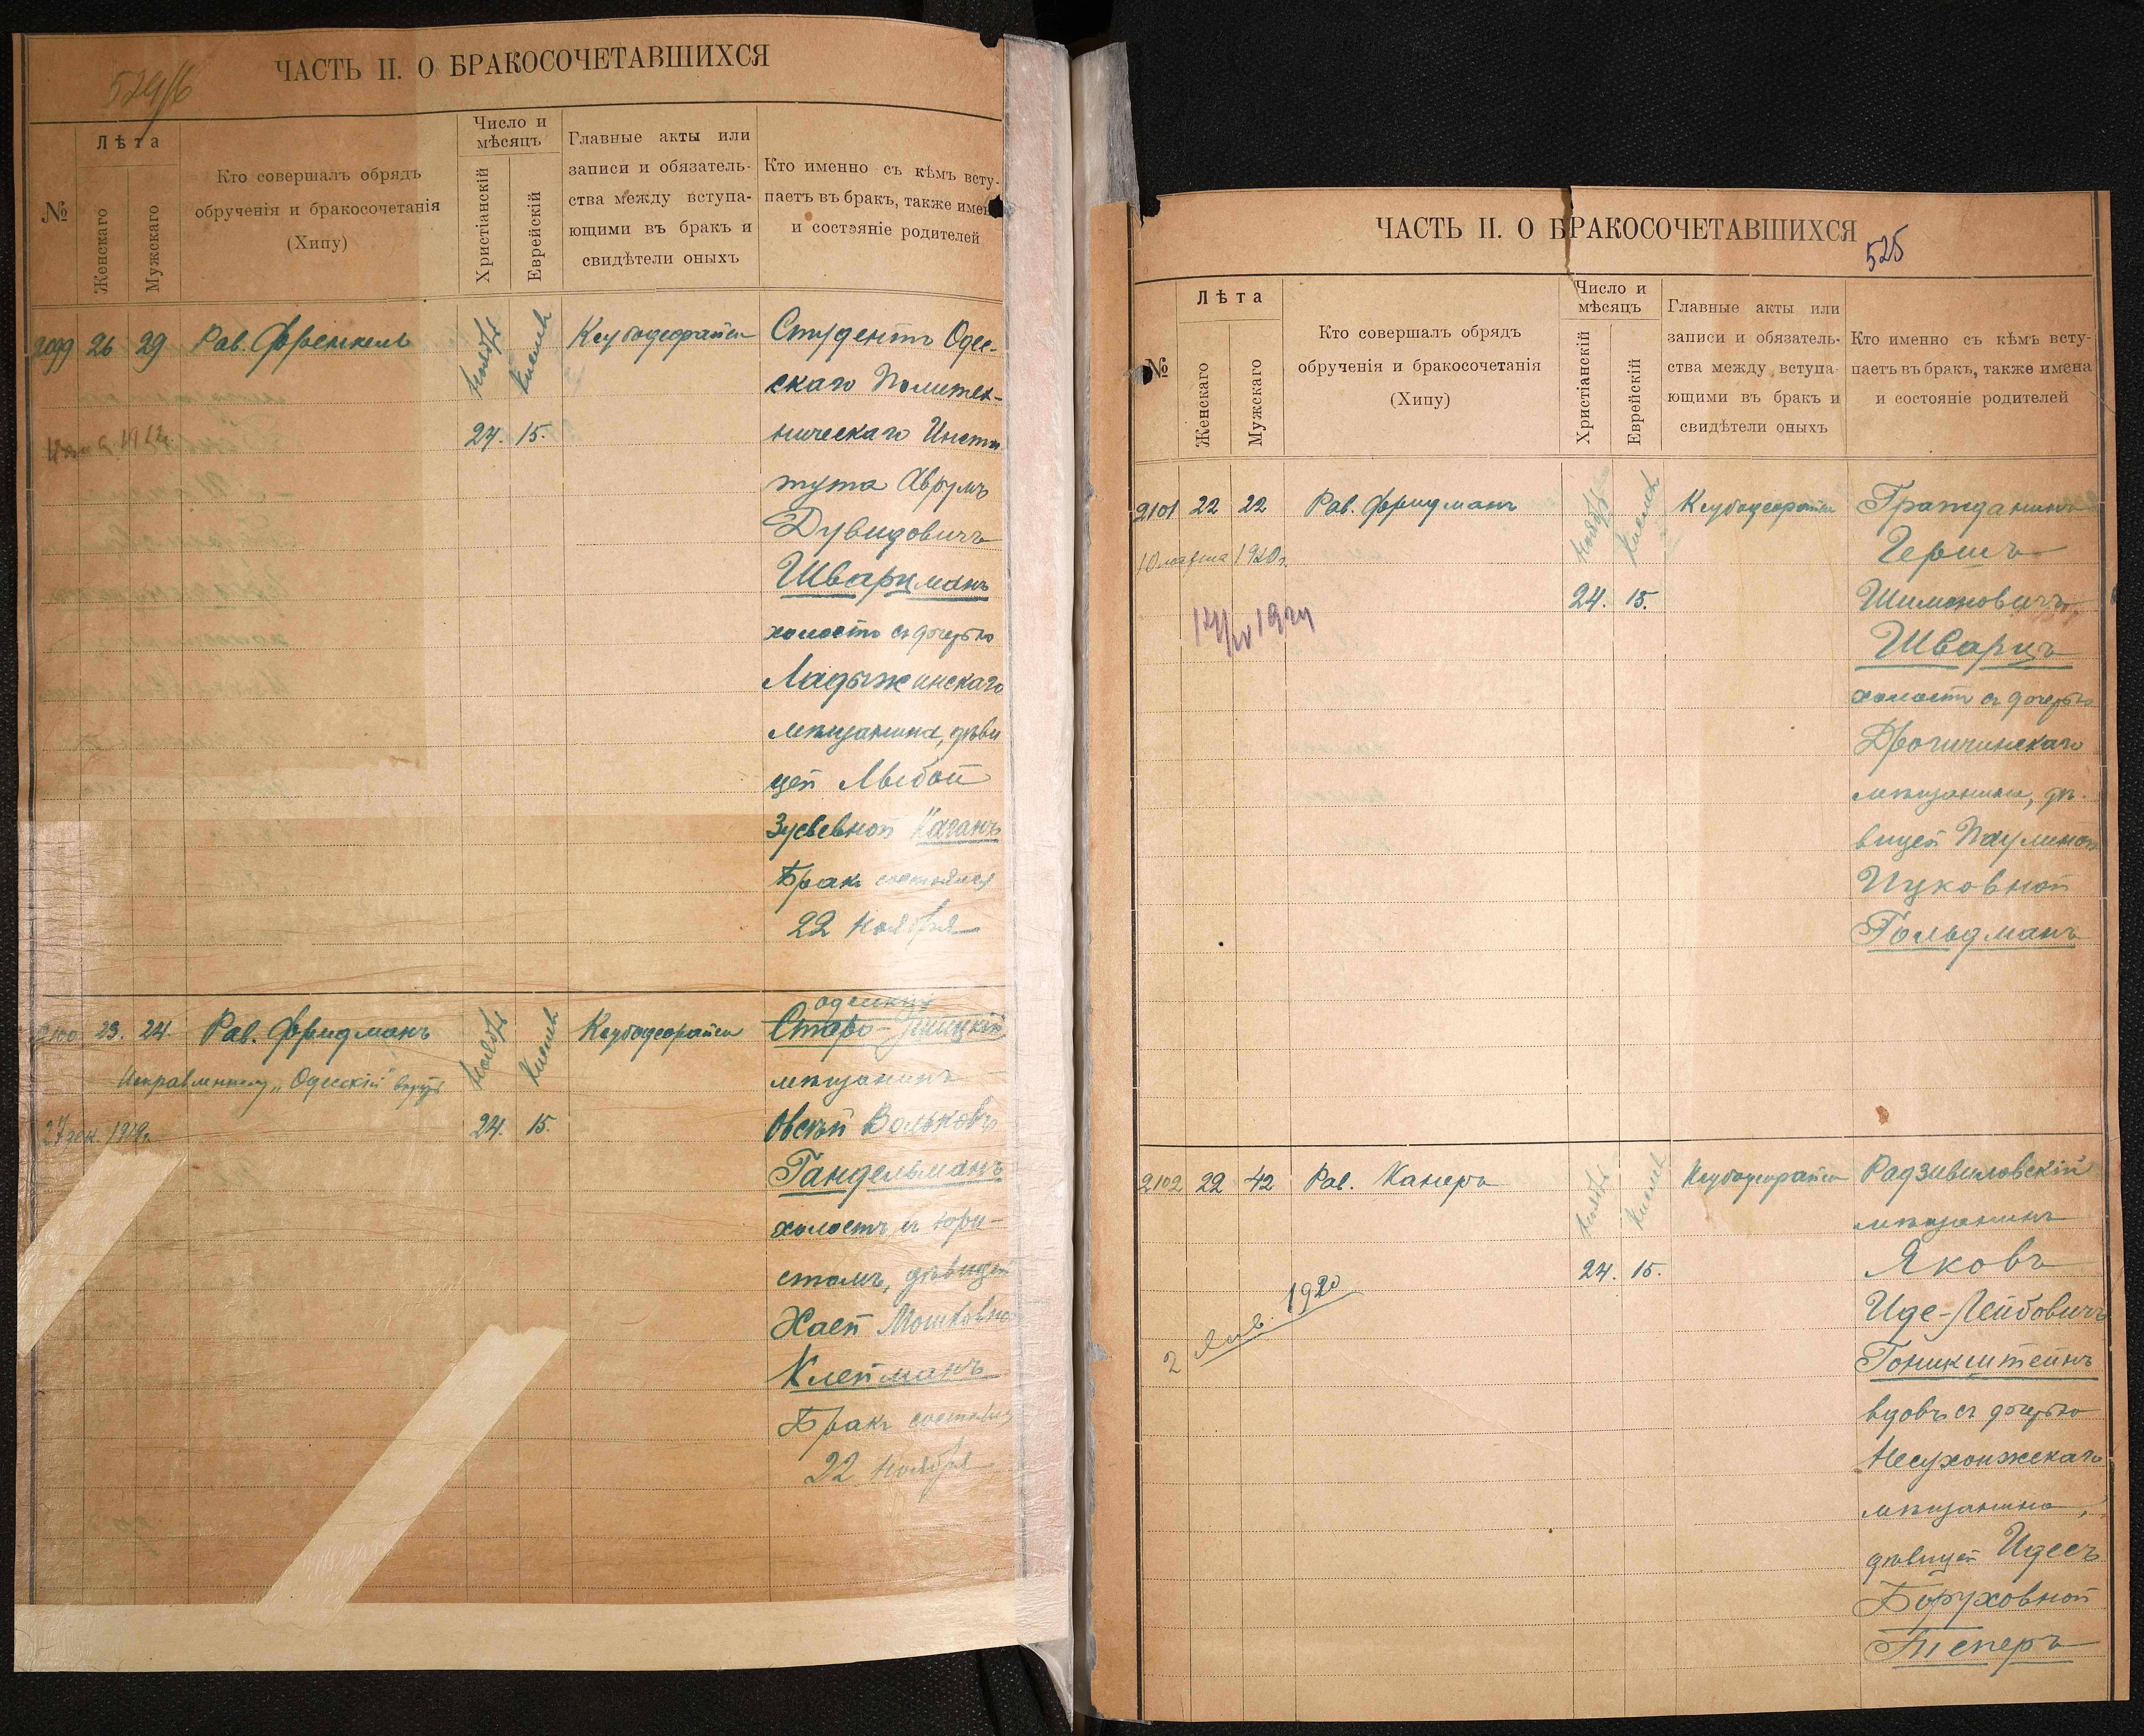 524/6
ЧАСТЬ II. О БРАКОСОЧЕТАВШИХСЯ
№
Лѣта
Женскаго
Мужскаго
Кто совершалъ обрядъ
обрученія и бракосочетанія
(Хипу)
Число и
мѣсяцъ
Христіанскій
Еврейскій
Главные акты или
записи и обязатель-
ства между вступа-
ющими въ бракъ и
свидѣтели оныхъ
Кто именно съ кѣмъ всту-
паетъ въ бракъ, также имен
и состояніе родителей
2099 26 29 Рав. Френкель Ноябрь Кислевъ Студентъ Одес-
скаго Политех-
24. 15. ническаго Инсти
тута Аврумъ
Дувидовичъ
Шварцманъ
холостъ съ дочерью
Ладыжинскаго
мѣщанина, дѣви
цей Любой
Зусьевной Каганъ
Бракъ состоялся
22 Ноября
одесскій
2100 23. 24. Рав. Фридманъ Ноябрь Кислевъ Старо-
Исправленному "Одесскій" вѣрить
мѣщанинъ
27 дек. 1919г. 24. 15. Овсѣй Вольковъ
Гандельманъ
холостъ съ юри-
стомъ, дѣвицей
Хаей Мошковно
Клейманъ
Бракъ состоялся
22 Ноября
ЧАСТЬ II. О БРАКОСОЧЕТАВШИХСЯ
525
№
Лѣта
Женскаго
Мужскаго
Кто совершалъ обрядъ
обрученія и бракосочетанія
(Хипу)
Число и
мѣсяцъ
Христіанскій
Еврейскій
Главные акты или
записи и обязатель-
ства между вступа-
ющими въ бракъ и
свидѣтели оныхъ
Кто именно съ кѣмъ всту-
паетъ въ бракъ, также имена
и состояніе родителей
2101 22 22 Рав. Фридманъ Ноябрь Кислевъ Гражданинъ
10 марта 1920г. Гершъ
24. 15. Шимоновичъ
Шварцъ
холостъ съ дочерью
Дрогичинскаго
мѣщанина, дѣ-
вицей Паулиной
Ицковной
Гольдманъ
2102 22 42 Рав. Канеръ Ноябрь Кислевъ Радзивиловскій
мѣщанинъ
24. 15. Яковъ
2 Янв. 1920 Иде-Лейбовичъ
Гоникштейнъ
вдовъ съ дочерью
Несухоижскаго
мѣщанина,
дѣвицей Идесъ
Боруховной
Теперъ